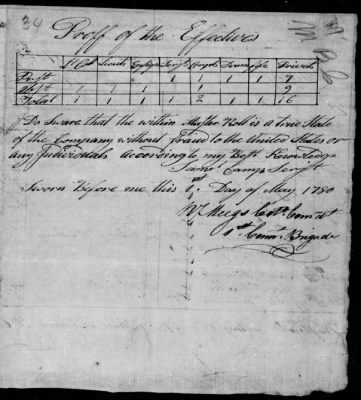 34
Proff of the Effectives
Lt Col Lieuts Ensign Serjts Corpls Drum fife Privats
Prest 1 1 1 1 7
Abst 1 1 1 1 9
Total 1 1 1 1 2 1 1 16
I Do Sware that the within Muster Roll is a true State
of the Company without fraud to the United States or
any Individuals according to my Best Knowledge
Sam. Camp Serjt
Sworn Before me this 1st Day of May 1780
R J Meigs Col. Comdt
1st Conn. Brigade